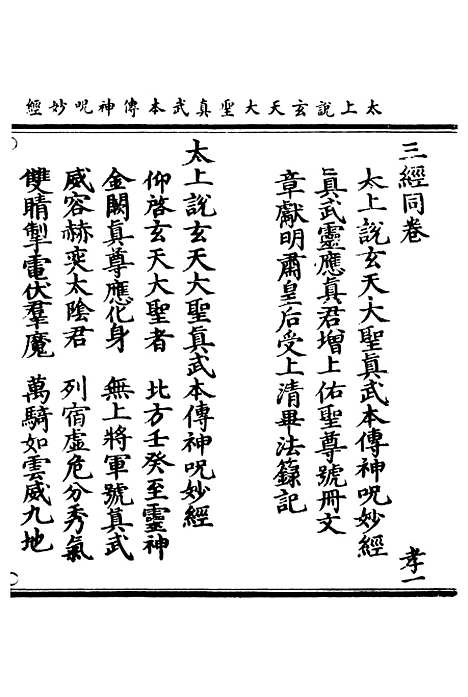 太上說玄天大聖真武本傳神呪妙經
三經同卷
孝一
太上說玄天大聖真武本傳神呪妙經
真武靈應真君增上佑聖尊號冊文
章獻明肅皇后受上清畢法籙記
太上說玄天大聖真武本傳神呪妙經
仰啓玄天大聖者　北方壬癸至靈神
金闕真尊應化身　無上將軍號真武
威容赫奕太陰君　列宿虛危分秀氣
雙睛掣電伏羣魔　萬騎如雲威九地